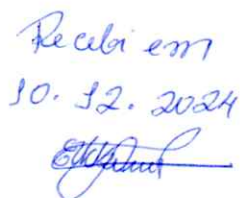 Recebi em
10.12.2024